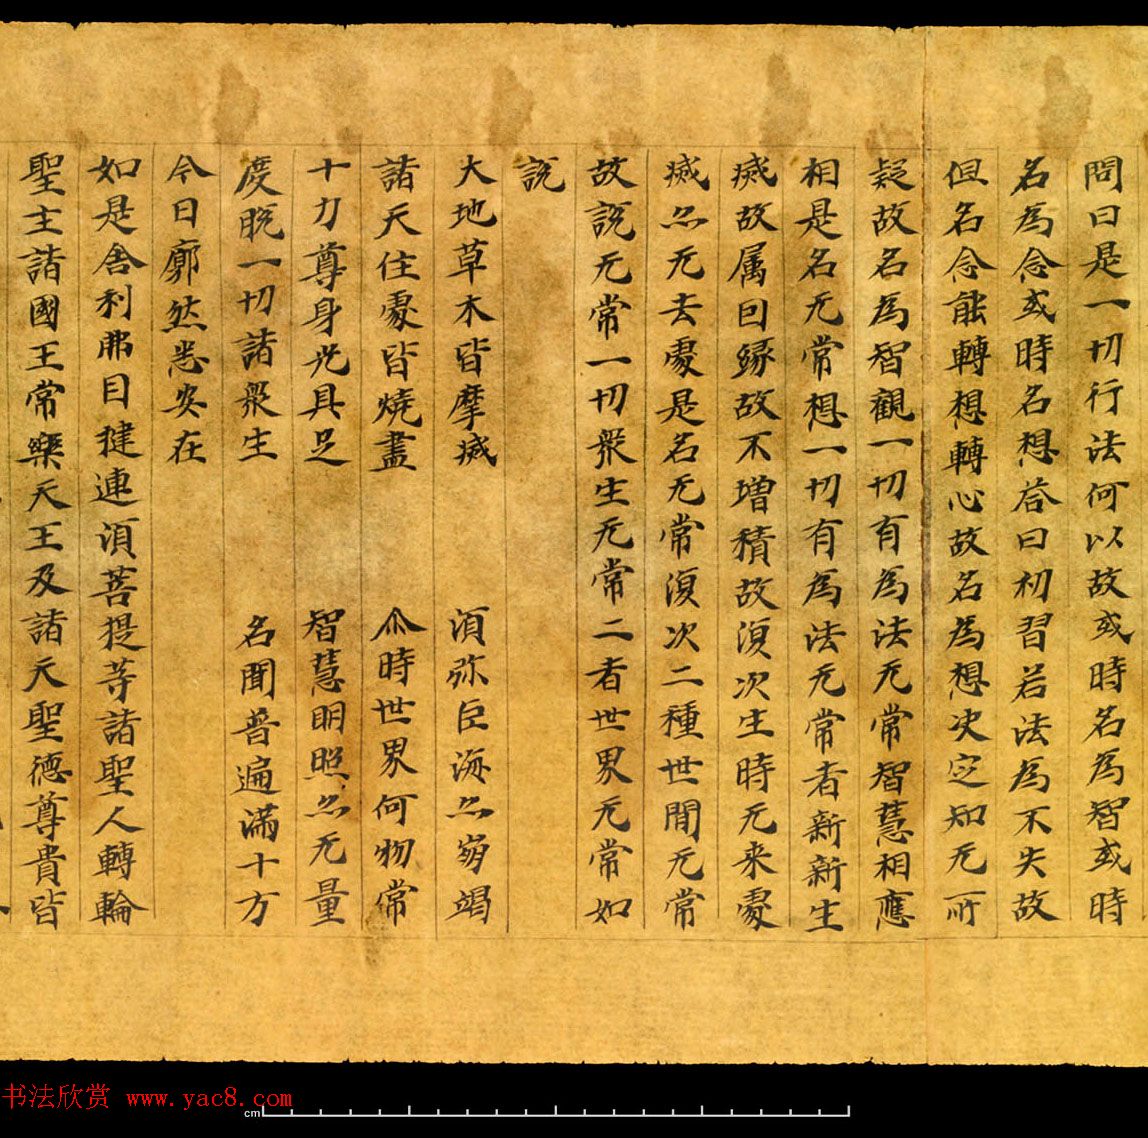 問曰是一切行法何以故或時名為智或時
名為念或時名想荅曰初習若法為不失故
但名念能轉想轉心故名為想决㝎知无所
疑故名為智觀一切有為法无常智慧相應
相是名无常想一切有為法无常者新新生
滅故属因緣故不增積故湏次生時无来處
滅亦无去處是名无常湏次二種世間无常
故說无常一切眾生无常二者世界无常如
說
大地草木皆摩滅 湏弥巨海亦崩竭
諸天住處皆燒盡 尒時世界何物常
十力尊身光具足 智慧明照亦无量
度脫一切諸眾生 名聞普遍滿十方
今日廓然悉安在
如是舍利弗目揵連湏菩提等諸聖人轉輪
聖主諸國王常樂天王及諸天聖德尊貴皆
书法欣赏 www.yac8.com
cm